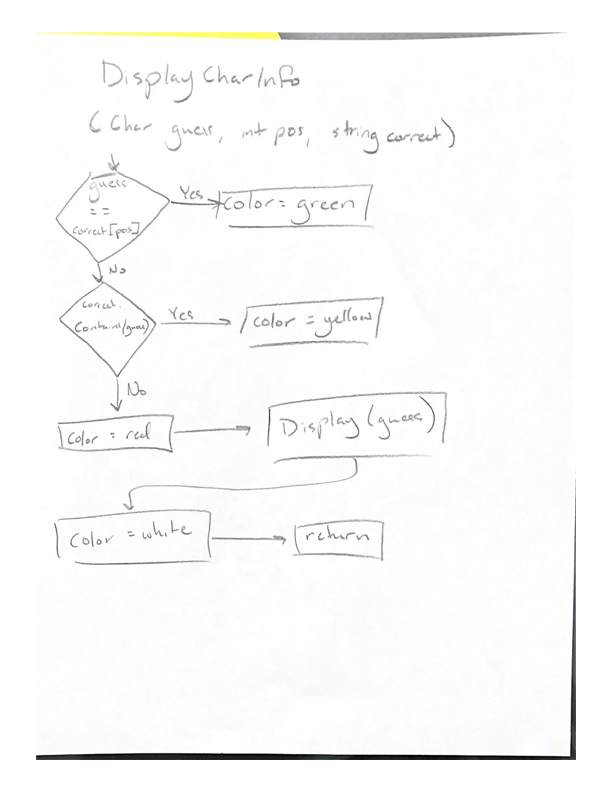 Display CharInfo
( Char guess, int pos, string correct)
guess
==
correct[pos]
Yes
color = green
No
correct.
Contains(guess)
Yes
color = yellow
No
color = red
Display (guess)
color = white
return